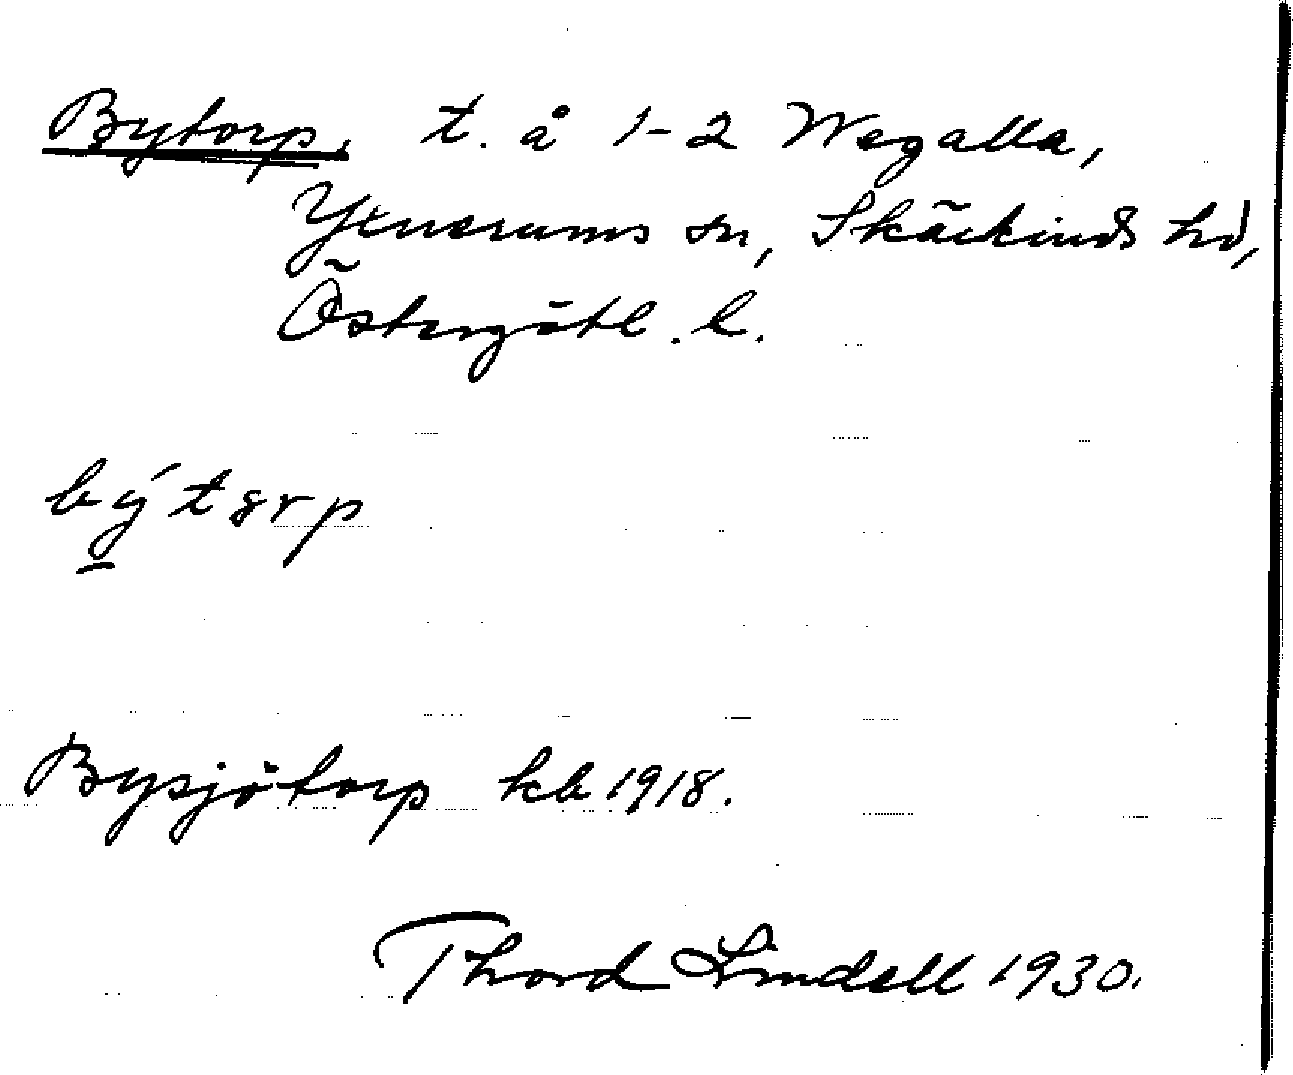 Bytorp, t. å 1-2 Wegalla,
Yxnerums sn, Skärkinds hd,
Östergötl. l.
býtɜrp
Bysjötorp kb 1918.
Thord Lindell 1930.